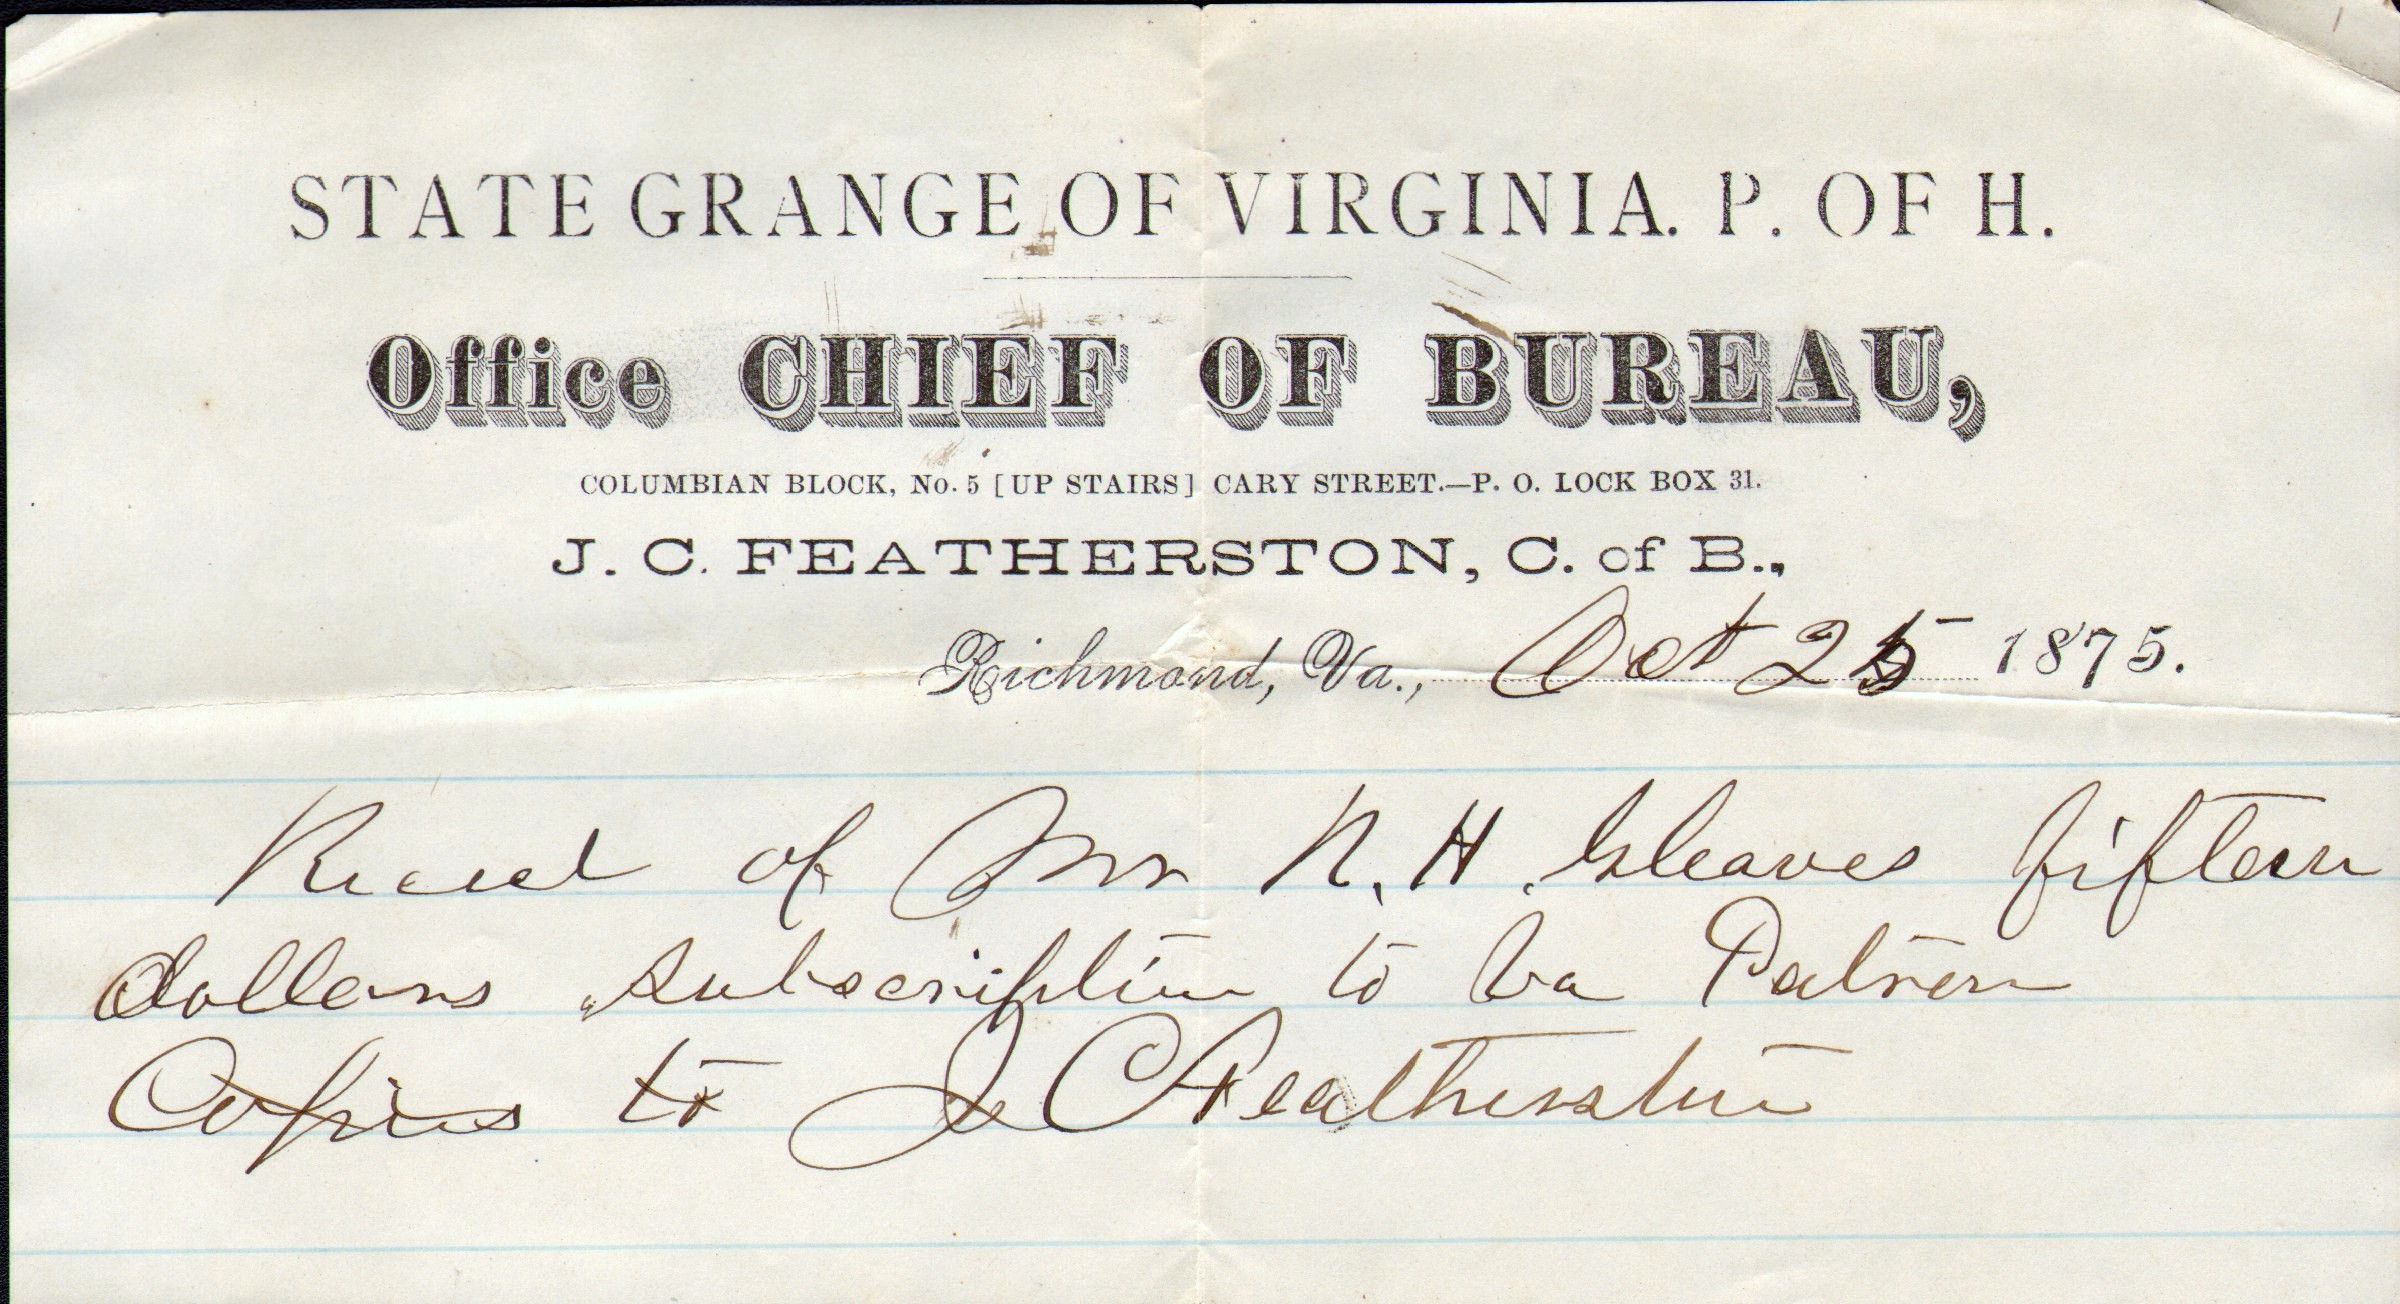 STATE GRANGE OF VIRGINIA. P. OF H.
Office CHIEF OF BUREAU,
COLUMBIAN BLOCK, No. 5 [UP STAIRS] CARY STREET.—P. O. LOCK BOX 31.
J. C. FEATHERSTON, C. of B.,
Richmond, Va., Oct 25 1875.
Recd of Mr N. H. Gleaves fifteen
dollars subscription to Va Patron
Copies to J C Featherston